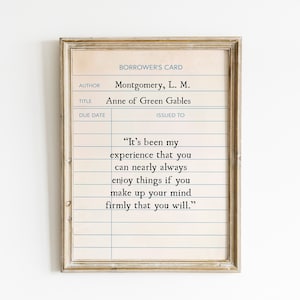 BORROWER'S CARD
AUTHOR Montgomery, L. M.
TITLE Anne of Green Gables
DUE DATE ISSUED TO
“It’s been my
experience that you
can nearly always
enjoy things if you
make up your mind
firmly that you will.”